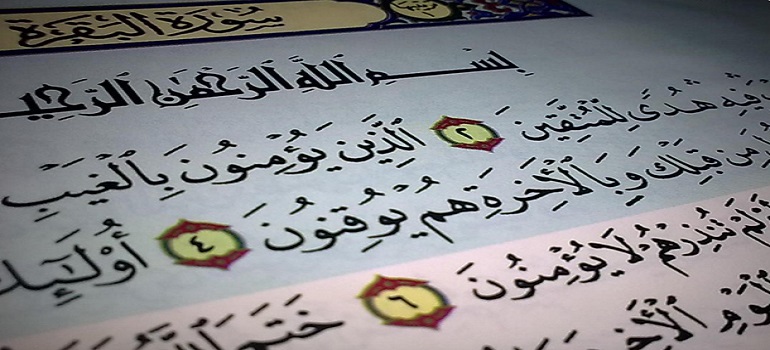 سُورَةُ الْبَقَرَةِ
بِسْمِ ٱللَّهِ ٱلرَّحْمَٰنِ ٱلرَّحِي
فِيهِ هُدًى لِّلْمُتَّقِينَ ٢ ٱلَّذِينَ يُؤْمِنُونَ بِٱلْغَيْبِ
مِن قَبْلِكَ وَبِٱلْأَخِرَةِ هُمْ يُوقِنُونَ ٤ أُو۟لَٰٓئِكَ
لَمْ تُنذِرْهُمْ لَا يُؤْمِنُونَ ٦ خَتَمَ ٱللَّهُ